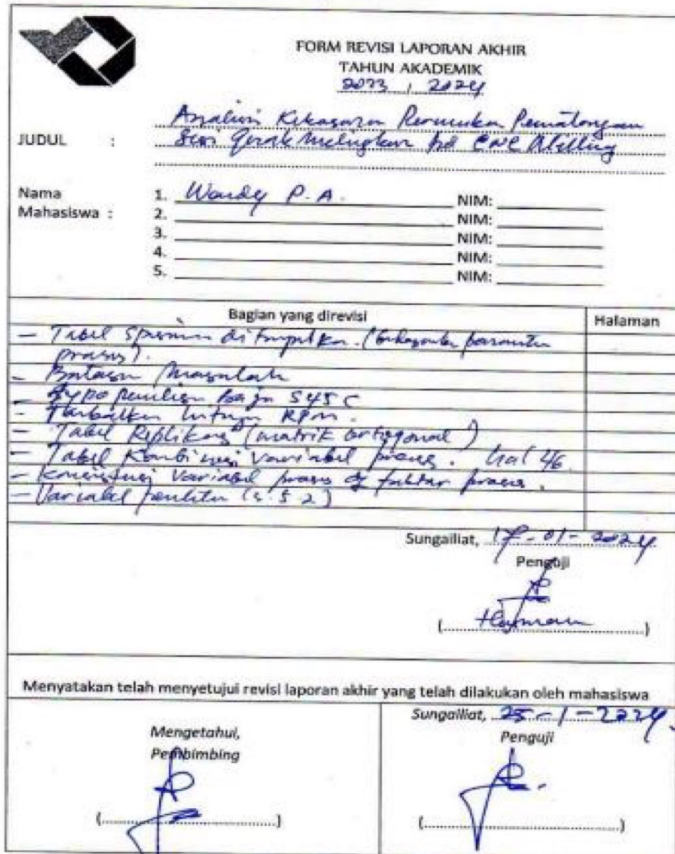 FORM REVISI LAPORAN AKHIR
TAHUN AKADEMIK
2023 / 2024
JUDUL :
Analisis Kekasaran Permukaan Pemotongan
Sisi Gerak Melingkar CNC Milling
Nama
Mahasiswa :
1. Wandy P.A. NIM:
2. NIM:
3. NIM:
4. NIM:
5. NIM:
Bagian yang direvisi Halaman
- Tabel di
proses).
- Batasan Masalah
S45C
- RPM.
- Tabel Replikasi (matrik ortogonal)
- Tabel Kombinasi variabel proses. hal 46
- Konsistensi variabel proses faktor proses.
- Variabel
Sungailiat, 17-01-2024
Penguji
(....................)
Menyatakan telah menyetujui revisi laporan akhir yang telah dilakukan oleh mahasiswa
Mengetahui,
Pembimbing
(....................)
Sungailiat, 25-1-2024.
Penguji
(....................)